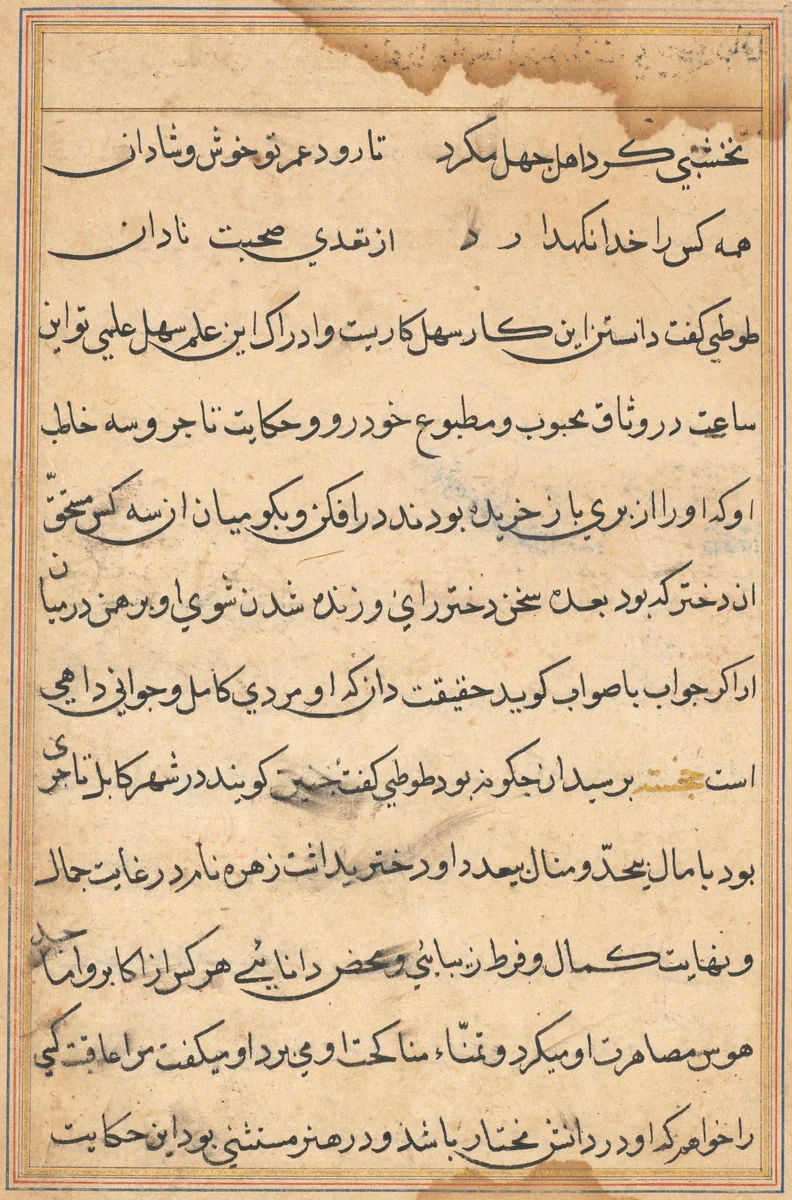 نخشبي كرد اهل جهل مكرد تا رود عمر تو خوش و شادان
همه كس را خدا نكهدارد از تعدي صحبت نادان
طوطي كفت دانستن اين كار سهل كاريست و ادراك اين علم سهل علمي تو اين
ساعت در وثاق محبوب و مطبوع خود رو و حكايت تاجر و سه خاطب
او كه او را از بري باز خريده بودند در افكن و بكو ميان از سه كس مستحقّ
ان دختر كه بود بعده سخن دختر راي و زنده شدن شوي او برهمن در ميان
ار اكر جواب با صواب كويد حقيقت دان كه او مردي كامل و جواني داهي
است خجسته برسيد ان جكونه بود طوطي كفت جنين كويند در شهر كابل تاجري
بود با مال بيحدّ و منال بيعدد او دختري داشت زهره نام در غايت جمال
و نهايت كمال و فرط زيبايئ و محض دانايئ هر كس از اكابر و اماجد
هوس مصاهرت او ميكرد و تمنّاء مناكحت او مي برد او ميكفت من اعاقبت كسي
را خواهم كه او در دانش مختار باشد و در هنر مستثني بود اين حكايت